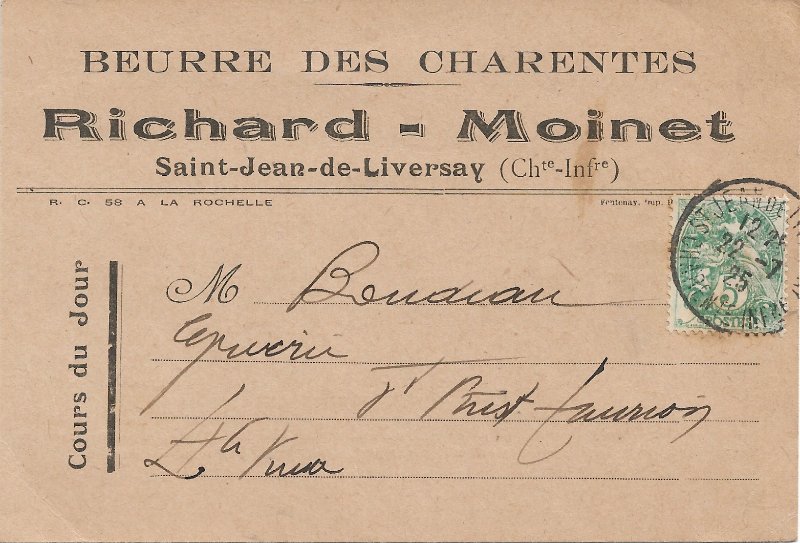 BEURRE DES CHARENTES
Richard - Moinet
Saint-Jean-de-Liversay (Chte-Infre)
R. C. 58 A LA ROCHELLE
Fontenay. Imp.
Cours du Jour
M Boudeau
Epicerie
St Priest Taurion
Hte Vienne
12
22 -7
25
5
POSTES